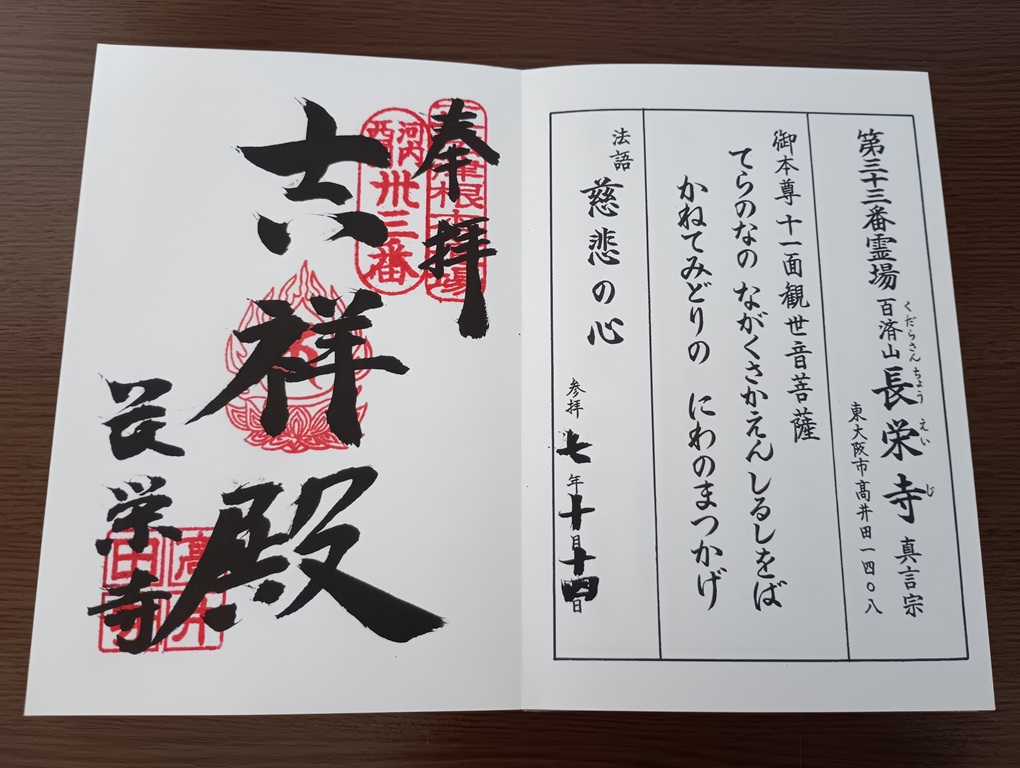 第三十三番霊場 百済山 長栄寺 真言宗
くだらさん ちょう えい じ
東大阪市高井田一四〇八
御本尊 十一面観世音菩薩
てらのなの ながくさかえん しるしをば
かねてみどりの にわのまつかげ
法語 慈悲の心
参拝 七年十月十四日
奉拝
河内西国
卅三番
吉祥殿
長栄寺